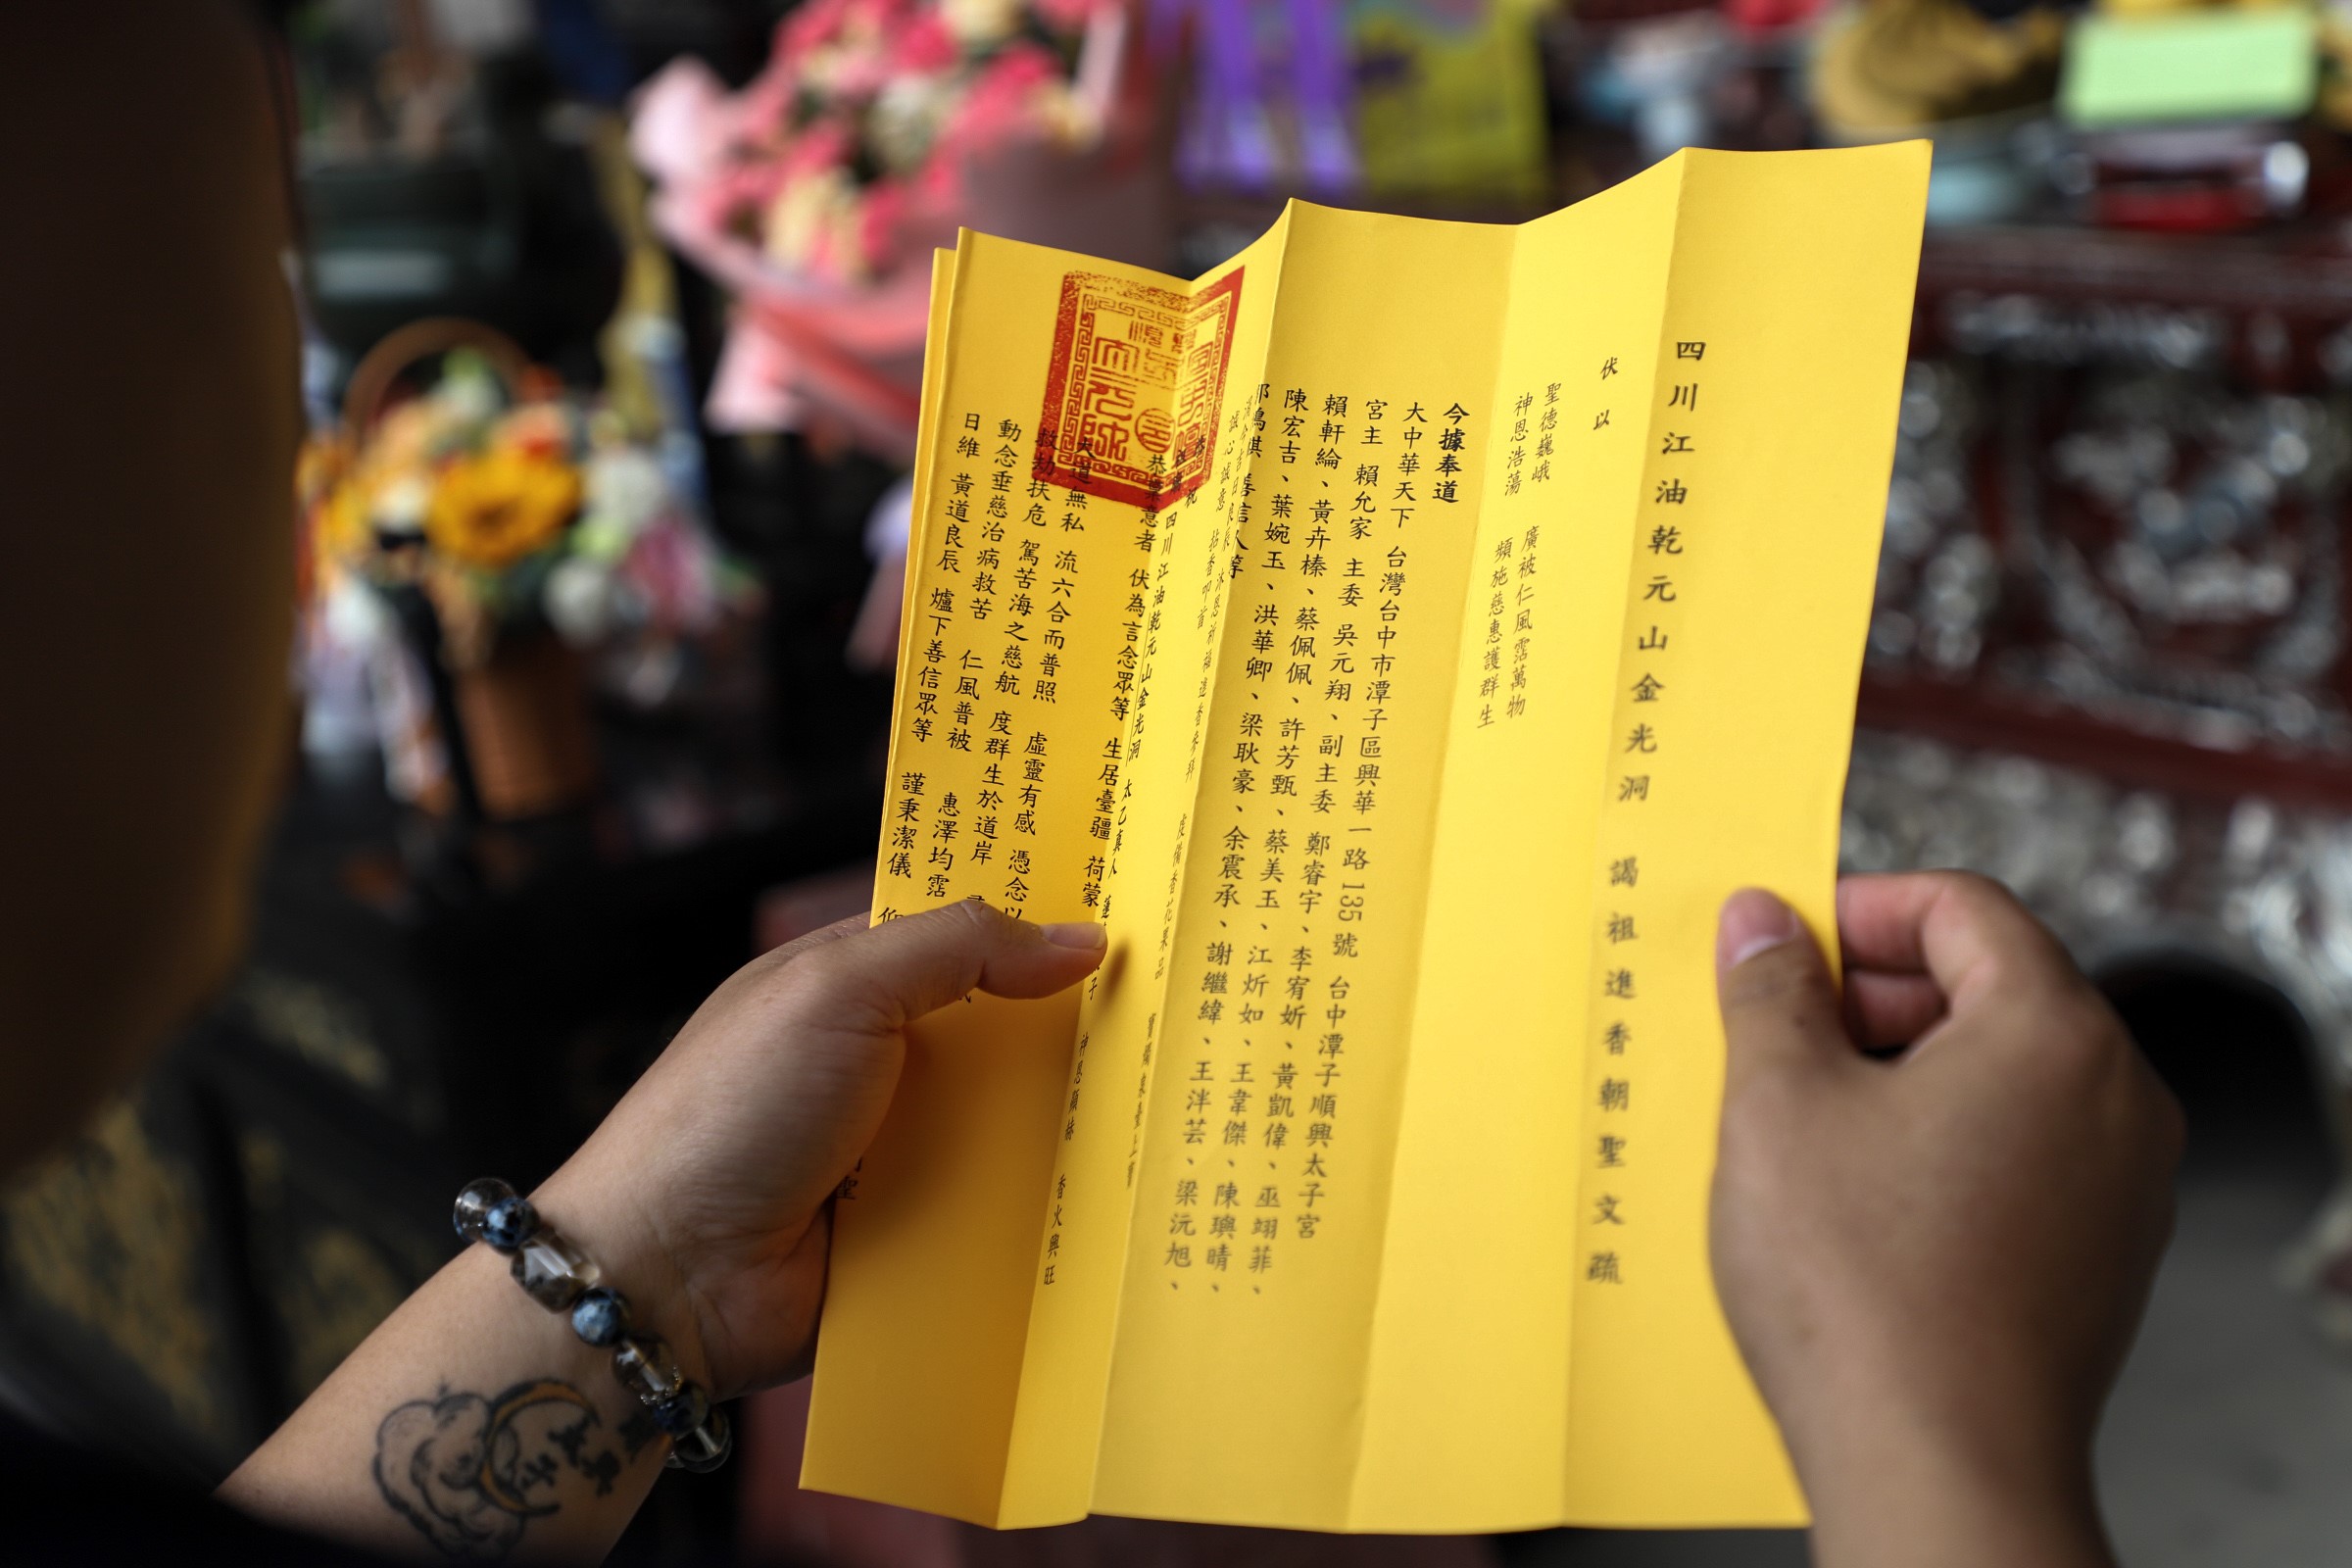 四川江油乾元山金光洞 謁祖進香朝聖文疏
伏以
聖德巍峨 廣被仁風霑萬物
神恩浩蕩 頻施慈惠護群生
今據奉道
大中華天下 台灣台中市潭子區興華一路135號 台中潭子順興太子宮
宮主 賴允家 主委 吳元翔、副主委 鄭睿宇、李宥妡、黃凱偉、巫翊菲、
賴軒綸、黃卉榛、蔡佩佩、許芳甄、蔡美玉、江炘如、王韋傑、陳璵晴、
陳宏吉、葉婉玉、洪華卿、梁耿豪、余震承、謝繼緯、王泮芸、梁沅旭、
善信人等
誠心誠意 拈香叩首
沐恩祈福進香參拜 度備香花果品
四川江油乾元山金光洞 太乙真人
神恩顯赫 香火興旺
恭稟意者 伏為言念眾等 生居臺疆 荷蒙
大道無私 流六合而普照 虛靈有感 憑念以
救劫扶危 駕苦海之慈航 度群生於道岸
動念垂慈治病救苦 仁風普被 惠澤均霑
日維 黃道良辰 爐下善信眾等 謹秉潔儀